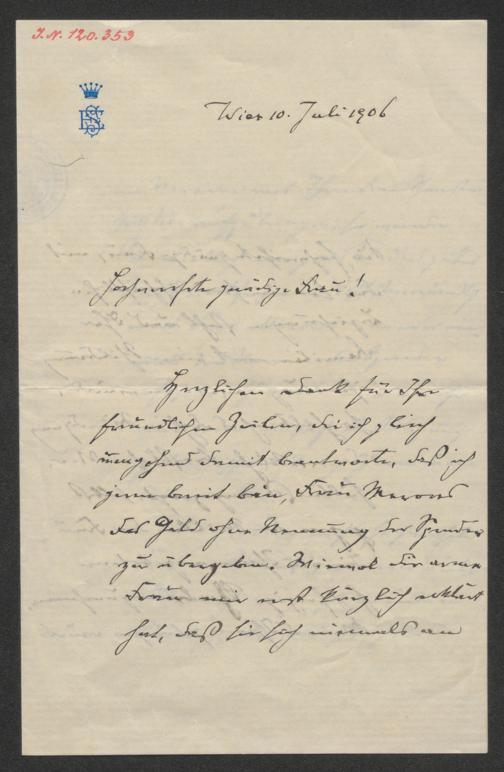 J. N. 120.353
Wien 10. Juli 1906
Hochverehrte gnädige Frau!
Herzlichen Dank für Ihre
freundlichen Zeilen, die ich gleich
umgehend damit beantworte, daß ich
gern bereit bin, Frau
das Geld ohne Nennung der Spender
zu übergeben. die arme
Frau mir erst kürzlich erklärt
hat, daß sie sich niemals an